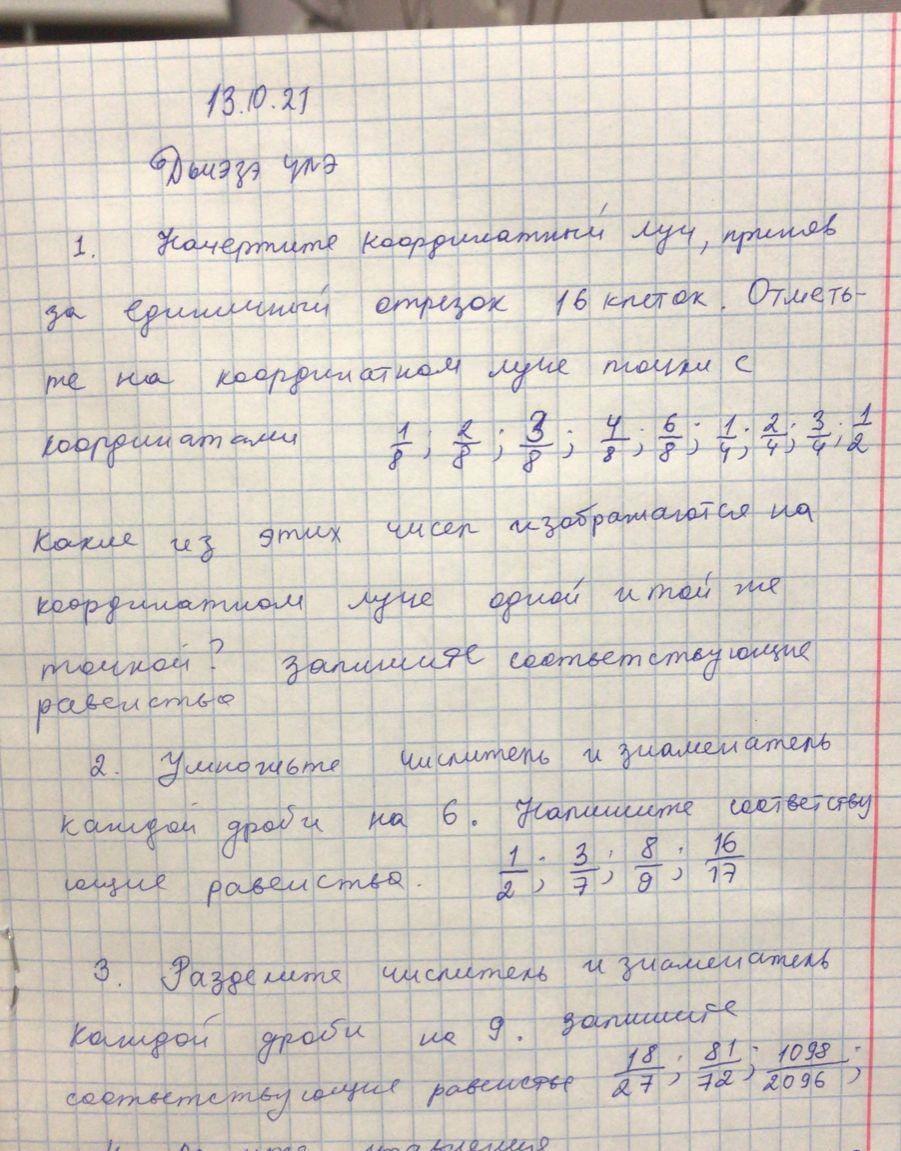 13.10.21
Дьиэҕэ үлэ
1. Начертите координатный луч, приняв
за единичный отрезок 16 клеток. Отметь-
те на координатном луче точки с
координатами 1/8; 2/8; 3/8; 4/8; 6/8; 1/4; 2/4; 3/4; 1/2
Какие из этих чисел изображаются на
координатном луче одной и той же
точкой? Запишите соответствующие
равенства
2. Умножьте числитель и знаменатель
каждой дроби на 6. Напишите соответству
ющие равенства. 1/2; 3/7; 8/9; 16/17
3. Разделите числитель и знаменатель
каждой дроби на 9. Запишите
соответствующие равенстве 18/27; 81/72; 1098/2096;